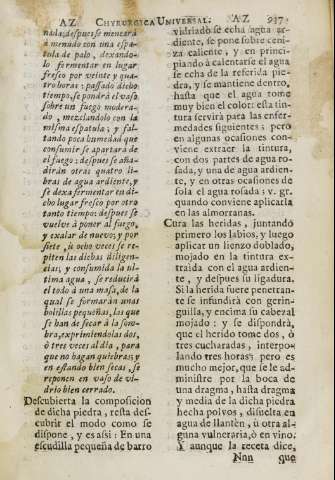 AZ Chyrurgica Universal. AZ 937
nada; despues se meneará
à menudo con una espa-
tula de palo, dexando-
lo fermentar en lugar
fresco por veinte y qua-
tro horas: passado dicho
tiempo, se pondrà el vaso
sobre un fuego modera-
do, mezclandolo con la
misma espatula; y fal-
tando poca humedad que
consumir se apartarà de
el fuego: despues se aña-
diràn otras quatro li-
bras de agua ardiente, y
se dexa fermentar en di-
cho lugar fresco por otro
tanto tiempo: despues se
vuelve à poner al fuego,
y exalar de nuevo; y por
siete, ù ocho veces se re-
piten las dichas diligen-
cias; y consumida la ul-
tima agua, se reducirà
el todo à una massa, de la
qual se formaràn unas
bolillas pequeñas, las que
se han de secar à la som-
bra, exprimiendolas dos,
ò tres veces al dia, para
que no hagan quiebras; y
en estando bien secas, se
reponen en vaso de vi-
drio bien cerrado.
Descubierta la composicion
de dicha piedra, resta des-
cubrir el modo como se
dispone, y es assi: En una
escudilla pequeña de barro
vidriado se echa agua ar-
diente, se pone sobre ceni-
za caliente, y en princi-
piando à calentarse el agua
se echa de la referida pie-
dra, y se mantiene dentro,
hasta que el agua tome
muy bien el color: esta tin-
tura servirà para las enfer-
medades siguientes; pero
en algunas ocasiones con-
viene extraer la tintura,
con dos partes de agua ro-
sada, y una de agua ardien-
te, y en otras ocasiones de
sola el agua rosada: v. gr.
quando conviene aplicarla
en las almorranas.
Cura las heridas, juntando
primero los labios, y luego
aplicar un lienzo doblado,
mojado en la tintura ex-
traida con el agua ardien-
te, y despues su ligadura.
Si la herida fuere penetran-
te se infundirà con gerin-
guilla, y encima su cabezal
mojado: y se dispondrà,
que el herido tome dos, ò
tres cucharadas, interpo-
lando tres horas; pero es
mucho mejor, que se le ad-
ministre por la boca de
una dragma, hasta dragma
y media de la dicha piedra
hecha polvos, disuelta en
agua de llantèn, ù otra al-
guna vulneraria, ò en vino.
Y aunque la receta dice,
Nnn que